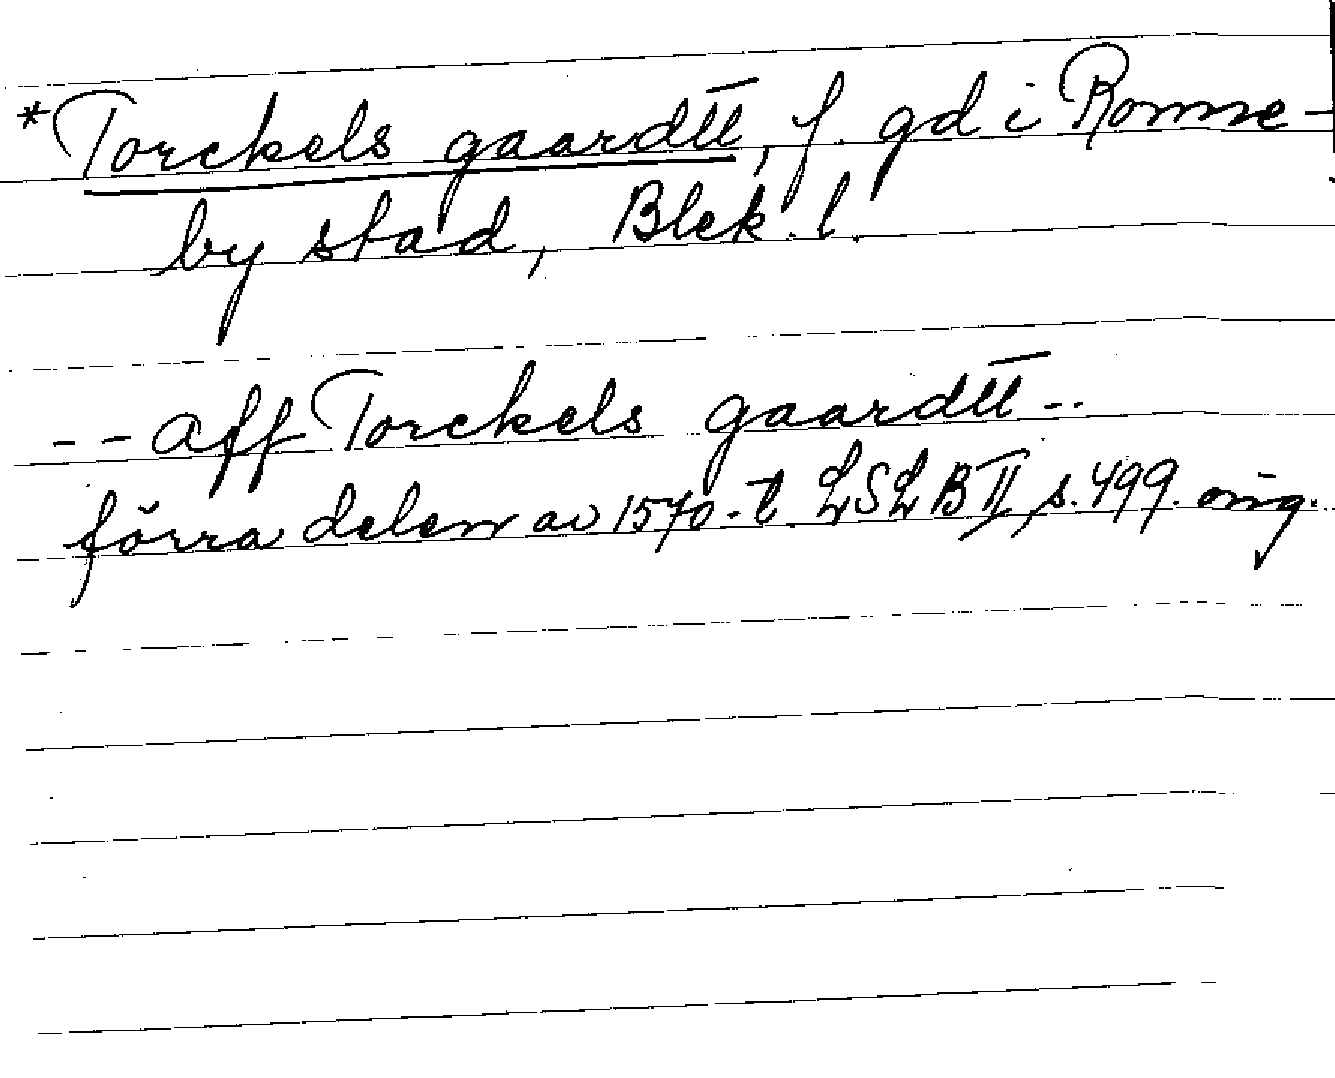 *Torckels gaardtt, f. gd i Ronne-
by stad, Blek. l.
-- aff Torckels gaardtt --
förra delen av 1570-t LSLB II, s. 499. orig.